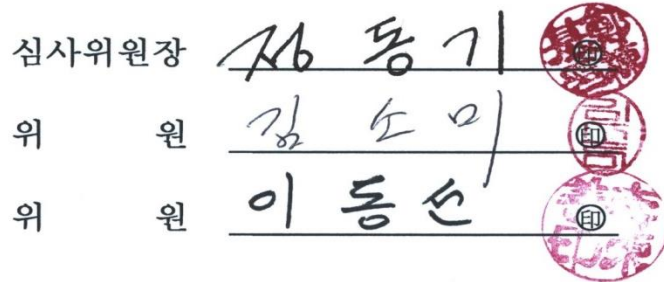 심사위원장 정동기 印
위 원 김소미 印
위 원 이동선 印